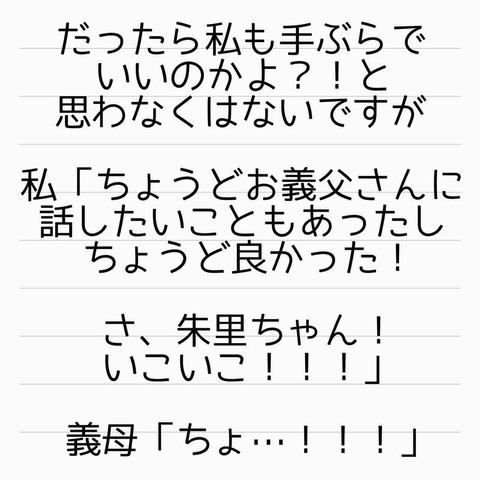 だったら私も手ぶらで
いいのかよ？！と
思わなくはないですが
私「ちょうどお義父さんに
話したいこともあったし
ちょうど良かった！
さ、朱里ちゃん！
いこいこ！！！」
義母「ちょ…！！！」